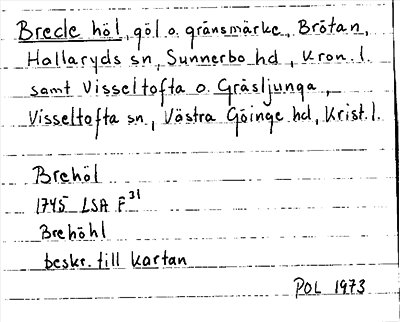 Brede höl, göl o. gränsmärke, Brötan,
Hallaryds sn, Sunnerbo hd, Kron. l.
samt Visseltofta o. Gräsljunga,
Visseltofta sn, Västra Göinge hd, Krist. l.
Brehöl
1745 LSA F31
Brehöhl
beskr. till kartan
POL 1973